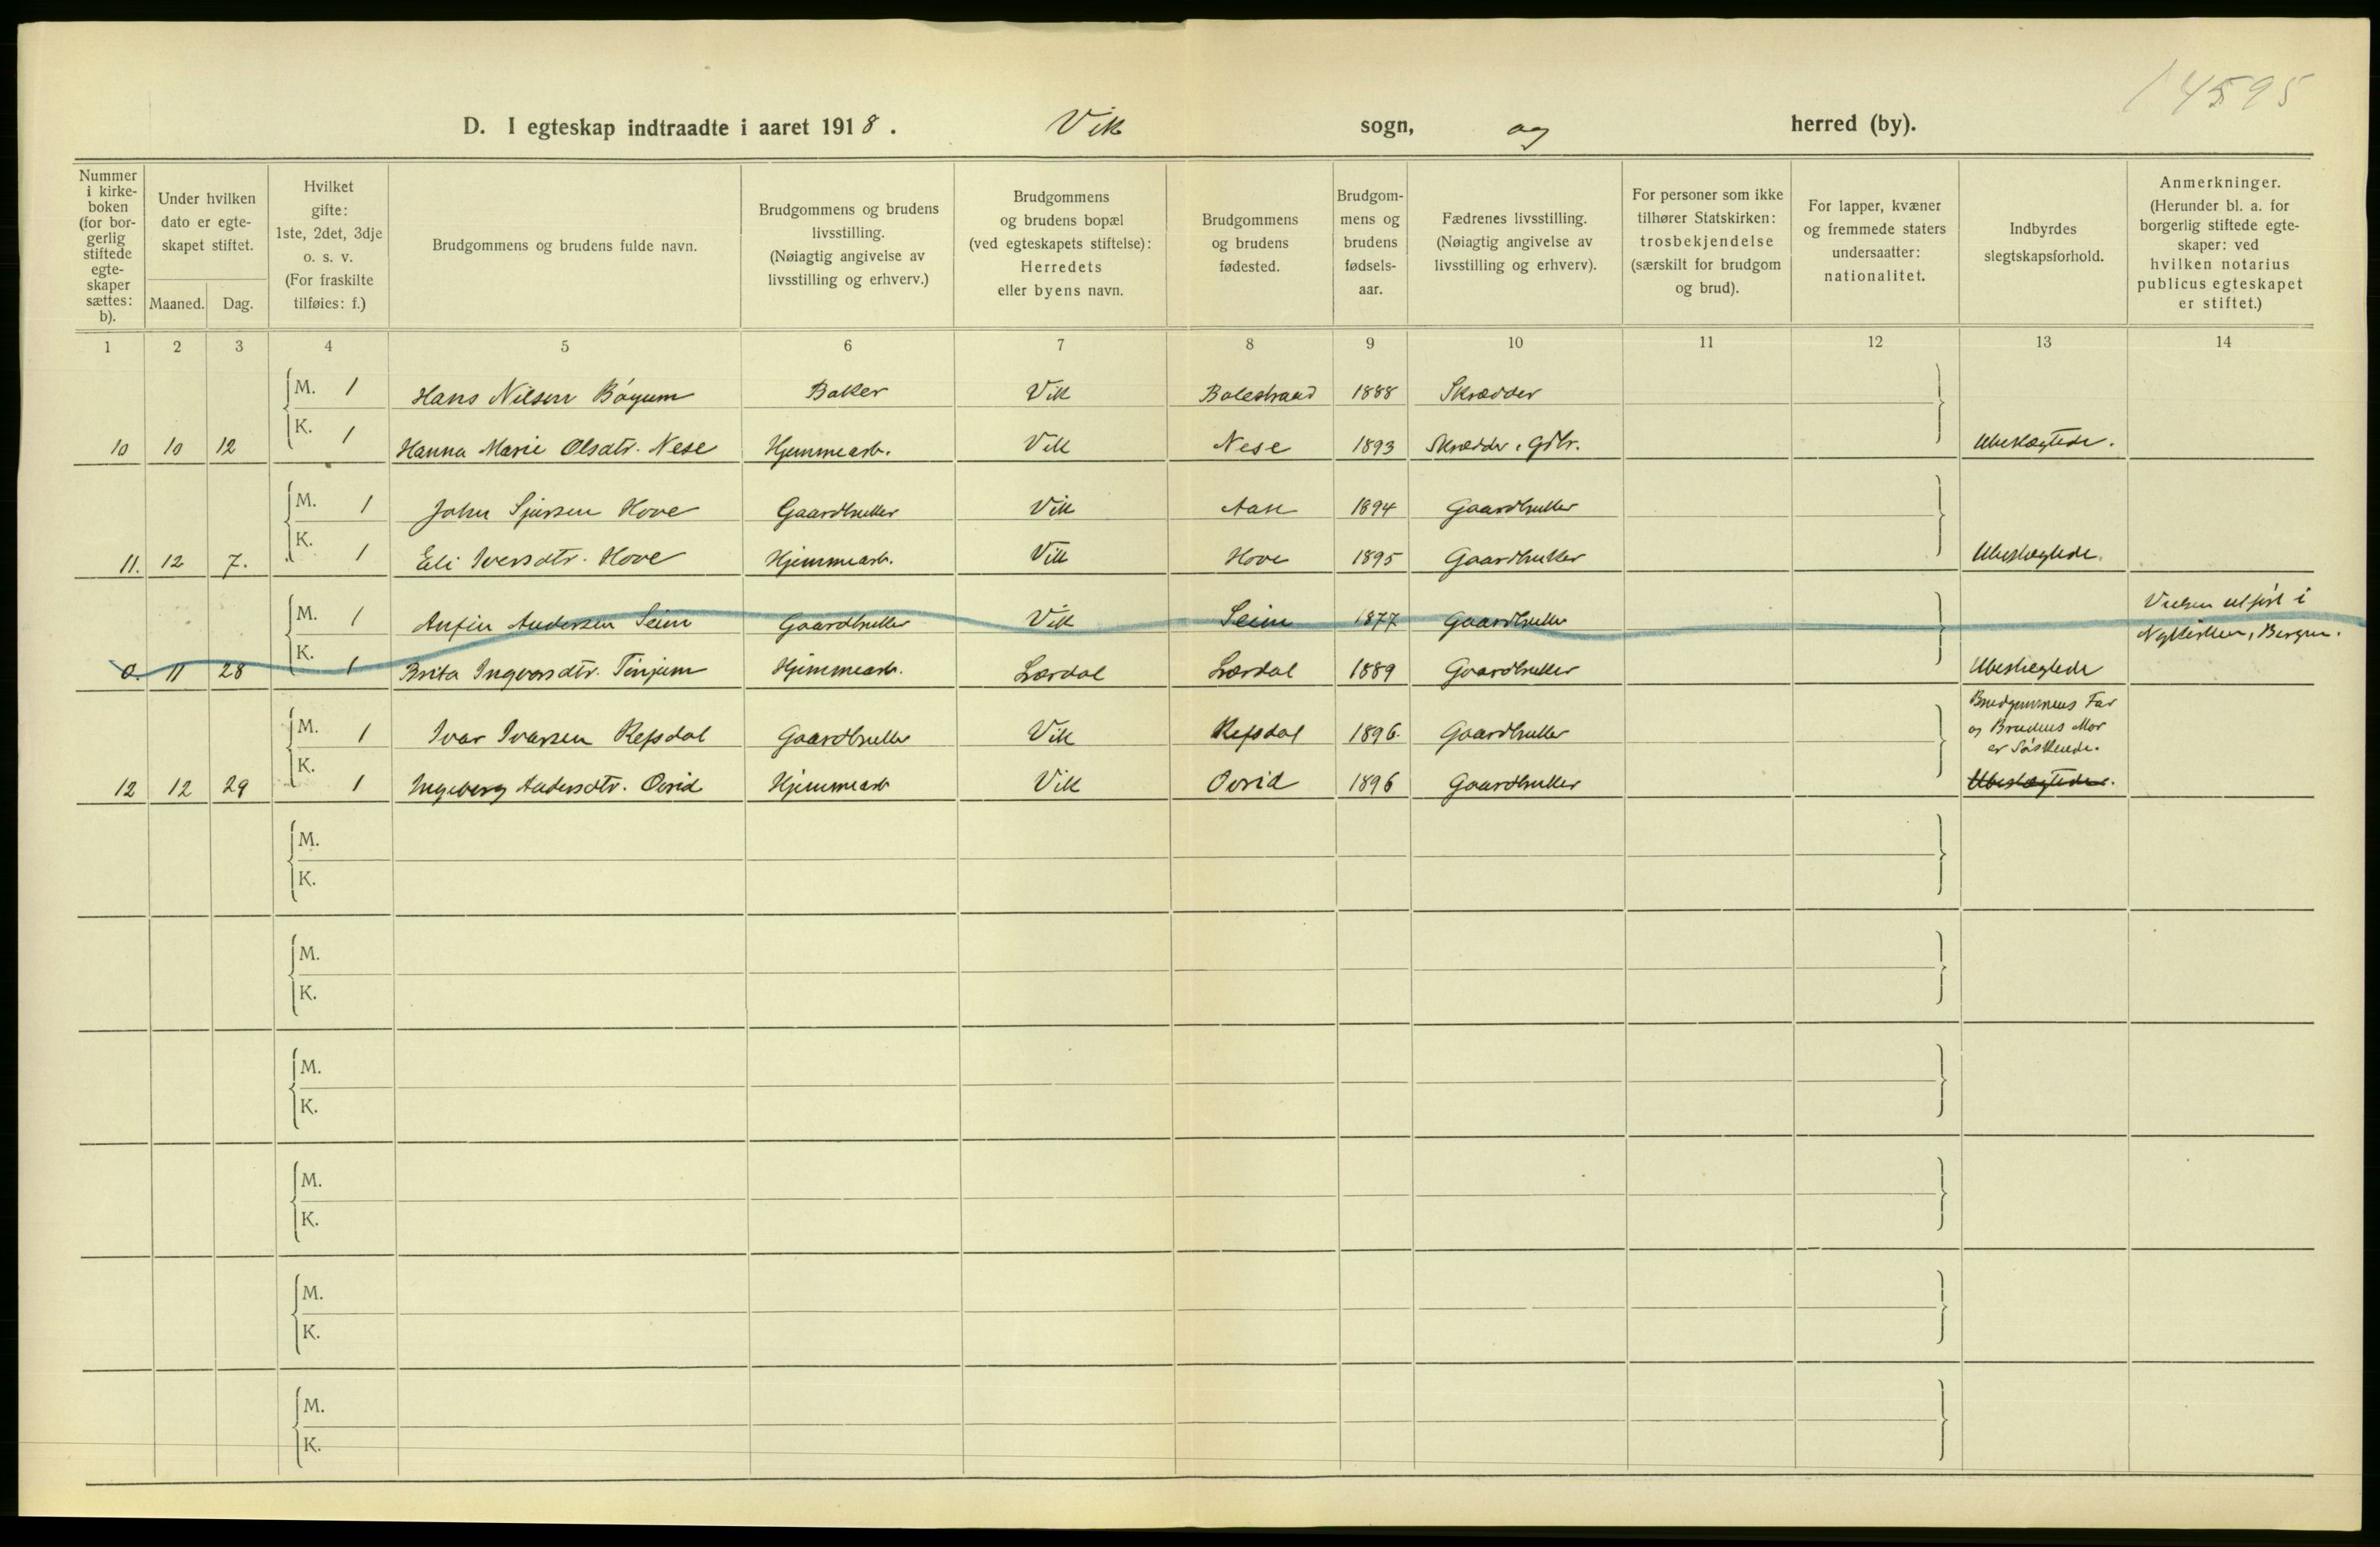 14595
D. I egteskap indtraadte i aaret 1918. Vik sogn, og herred (by).
Nummer i kirkeboken (for borgerlig stiftede egteskaper sættes: b).
Under hvilken dato er egteskapet stiftet.
Maaned. Dag.
Hvilket gifte: 1ste, 2det, 3dje o. s. v. (For fraskilte tilføies: f.)
Brudgommens og brudens fulde navn.
Brudgommens og brudens livsstilling. (Nøiagtig angivelse av livsstilling og erhverv.)
Brudgommens og brudens bopæl (ved egteskapets stiftelse): Herredets eller byens navn.
Brudgommens og brudens fødested.
Brudgommens og brudens fødselsaar.
Fædrenes livsstilling. (Nøiagtig angivelse av livsstilling og erhverv).
For personer som ikke tilhører Statskirken: trosbekjendelse (særskilt for brudgom og brud).
For lapper, kvæner og fremmede staters undersaatter: nationalitet.
Indbyrdes slegtskapsforhold.
Anmerkninger. (Herunder bl. a. for borgerlig stiftede egteskaper: ved hvilken notarius publicus egteskapet er stiftet.)
1 2 3 4 5 6 7 8 9 10 11 12 13 14
M. 1 Hans Nilsen Bøyum Baker Vik Balestrand 1888 Skrædder
10 10 12 K. 1 Hanna Marie Olsdtr. Nese Hjemmearb. Vik Nese 1893 Skrædder, Gdbr. Ubeslægtede.
M. 1 John Sjursen Hove Gaardbruker Vik 1894 Gaardbruker
11. 12 7. K. 1 Eli Iversdtr. Hove Hjemmearb. Vik Hove 1895 Gaardbruker Ubeslægtede.
M. 1 Anfin Andersen Seim Gaardbruker Vik Seim 1877 Gaardbruker Vielsen utført i Nykirken, Bergen.
0. 11 28 K. 1 Brita Ingvarsdtr. Tinjum Hjemmearb. Lærdal Lærdal 1889 Gaardbruker Ubeslegtede
M. 1 Ivar Ivarsen Refsdal Gaardbruker Vik Refsdal 1896 Gaardbruker Brudgommens Far og Brudens Mor er Søskende.
12 12 29 K. 1 Ingeborg Andersdtr. Ovrid Hjemmearb Vik Ovrid 1896 Gaardbruker Ubeslægtede.
M.
K.
M.
K.
M.
K.
M.
K.
M.
K.
M.
K.